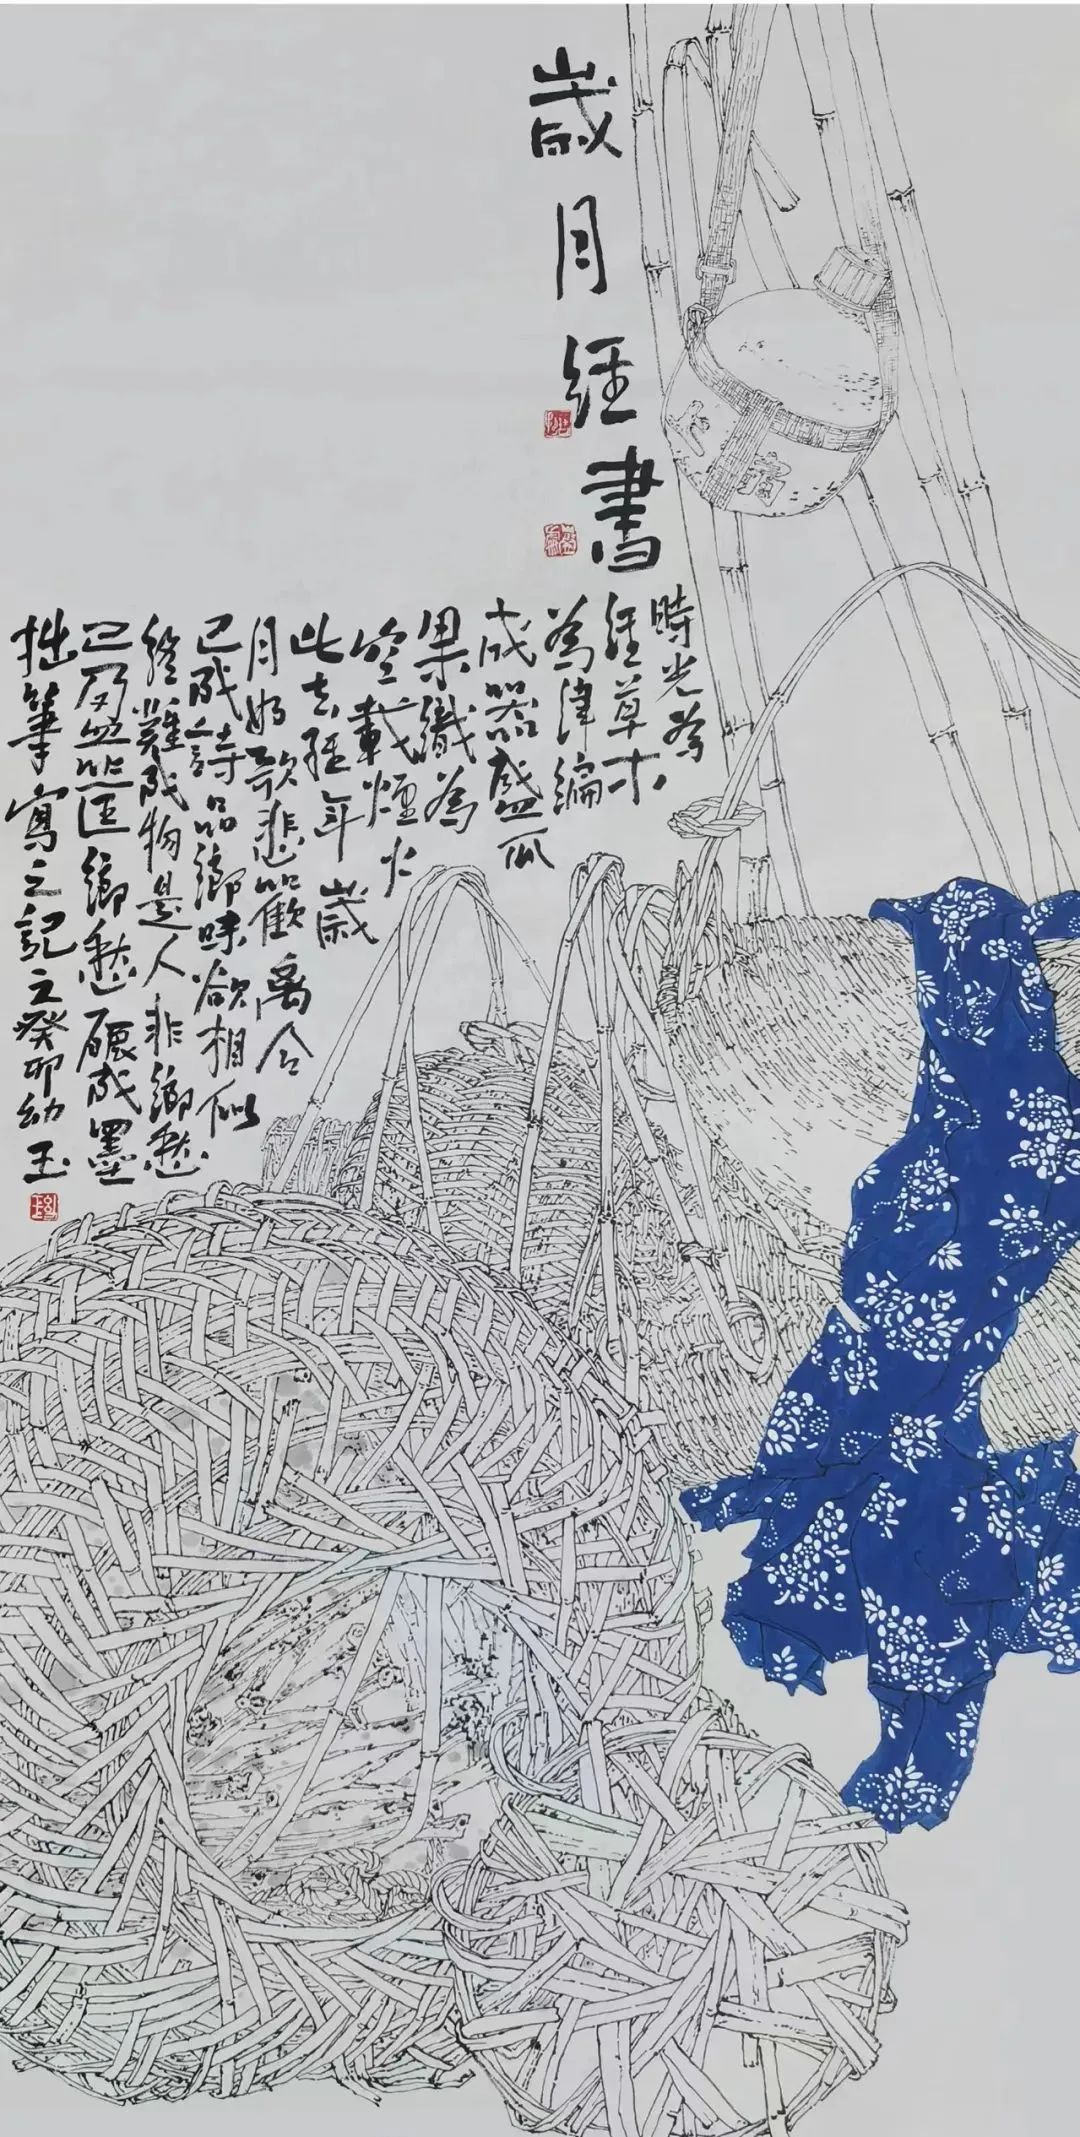 歲月經書
時光為
經草木
為緯編
成器盛瓜
果織為
空載煙火
此去經年歲
月如歌悲歡离合
已成詩品鄉味欲相似
終難成物是人非鄉愁
已盈筐鄉愁碾成墨
拙筆寫之記之癸卯幼玉